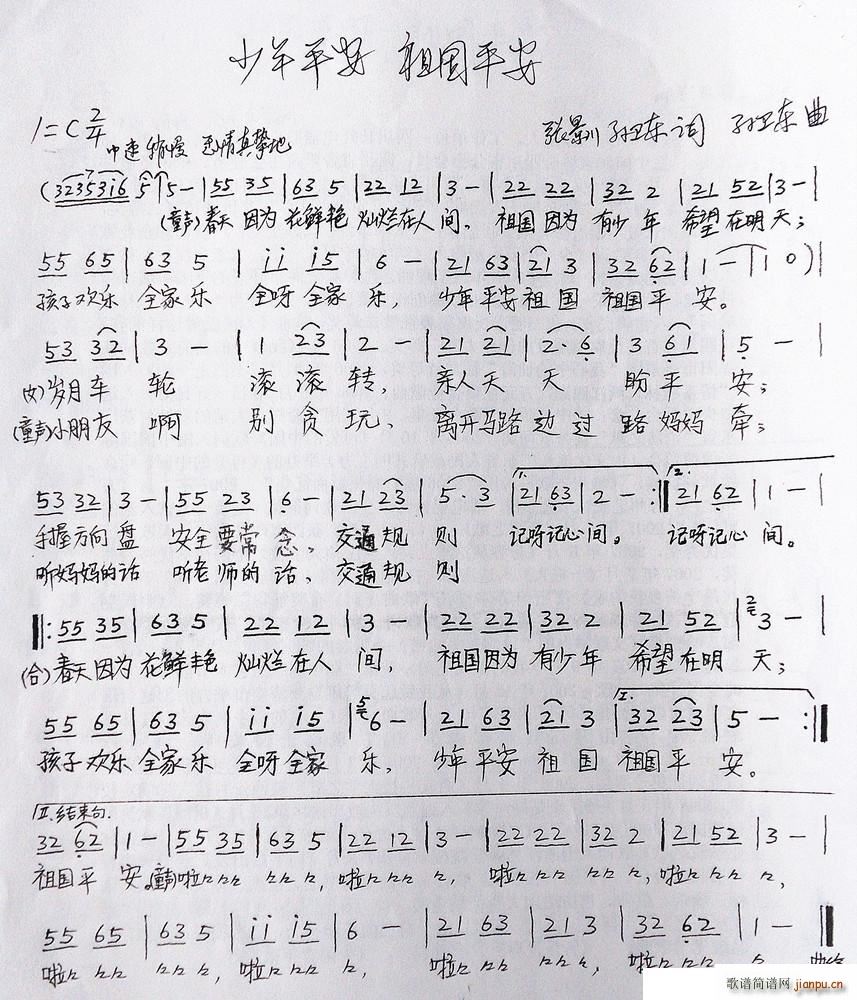 少年平安 祖国平安
1=C 2/4
中速稍慢 感情真挚地 张景川 孙卫东 词 孙卫东 曲
(3235316 5 | 5 - | 55 35 | 63 5 | 22 12 | 3 - | 22 22 | 32 2 | 21 52 | 3 - |
(童声)春天 因为 花鲜艳 灿烂在人间, 祖国因为 有少年 希望在明天;
55 65 | 63 5 | ii i5 | 6 - | 21 63 | 21 3 | 32 62 | 1 - | 1 0) |
孩子欢乐 全家乐 全呀全家 乐, 少年平安祖国 祖国平安。
53 32 | 3 - | 1 23 | 2 - | 21 21 | 2· 6 | 3 61 | 5 - |
(女)岁月车轮 滚滚转, 亲人天天 盼平安;
(童声)小朋友啊 别贪玩, 离开马路边过路妈妈牵;
53 32 | 3 - | 55 23 | 6 - | 21 23 | 5· 3 | 1. 21 63 | 2 - :| 2. 21 62 | 1 - |
手握方向盘 安全要常念, 交通规则 记呀记心间。 记呀记心间。
听妈妈的话 听老师的话, 交通规则
|: 55 35 | 63 5 | 22 12 | 3 - | 22 22 | 32 2 | 21 52 | 2 3 - |
(合)春天因为花鲜艳 灿烂在人间, 祖国因为有少年 希望在明天;
55 65 | 63 5 | ii i5 | 5 6 - | 21 63 | 21 3 | I. 32 23 | 5 - :|
孩子欢乐全家乐 全呀全家乐, 少年平安祖国 祖国平安。
II.结束句.
32 62 | 1 - | 55 35 | 63 5 | 22 12 | 3 - | 22 22 | 32 2 | 21 52 | 3 - |
祖国平安。(童声)啦々々々 々々々, 啦々々々 々, 啦々々々 々々々, 啦々々々 々,
55 65 | 63 5 | ii i5 | 6 - | 21 63 | 21 3 | 32 62 | 1 - ||
啦々 々々 々々々, 啦々々々 々, 啦々 々々 々々々, 啦々々々 々
歌谱简谱网
jianpu.cn